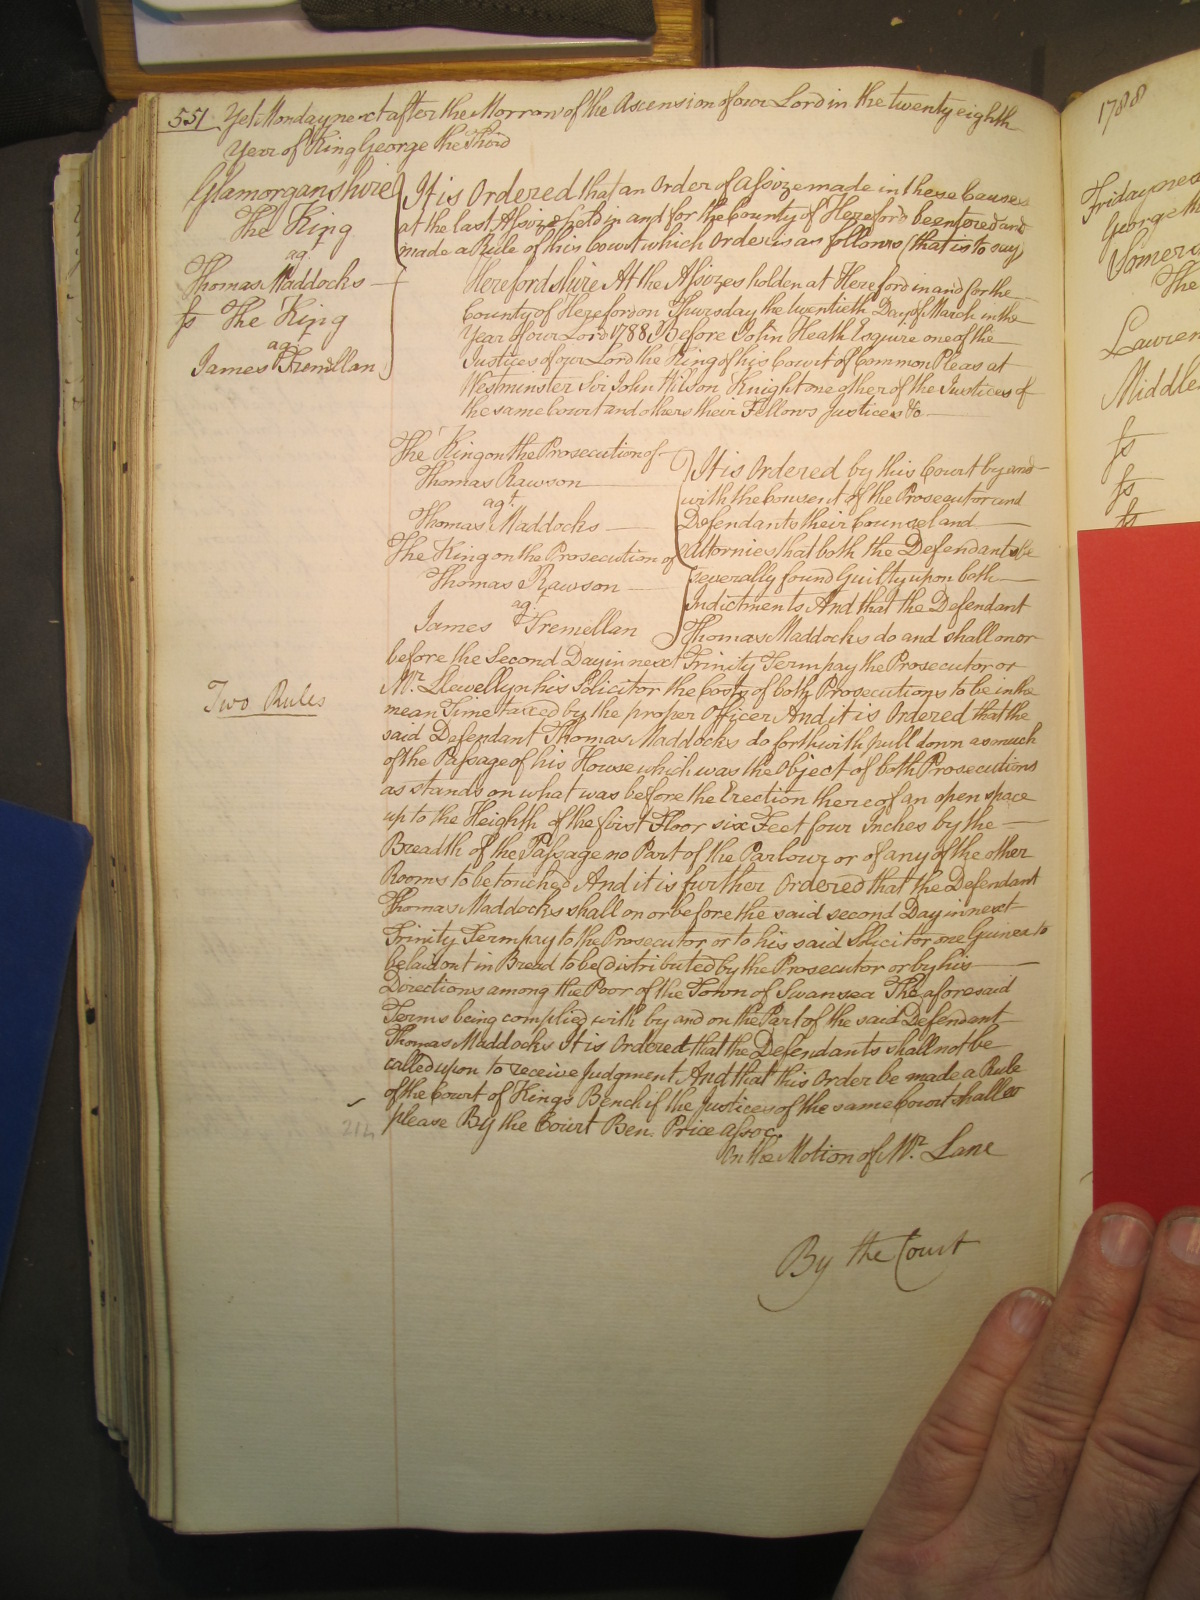 551 Yet Monday next after the Morrow of the Ascension of our Lord in the twenty eighth
Year of King George the Third
Glamorganshire
The King
agt
Thomas Maddocks
fs The King
agt
James Tremellan
It is Ordered that an Order of Assize made in these Causes
at the last Assizes held in and for the County of Hereford be entered and
made a Rule of this Court which Order is as follows (that is to say)
Herefordshire At the Assizes holden at Hereford in and for the
County of Hereford on Thursday the twentieth Day of March in the
Year of our Lord 1788 Before John Heath Esquire one of the
Justices of our Lord the King of his Court of Common Pleas at
Westminster Sir John Wilson Knight one other of the Justices of
the same Court and others their Fellows Justices &c
The King on the Prosecution of
Thomas Rawson
agt.
Thomas Maddocks
The King on the Prosecution of
Thomas Rawson
agt
James Tremellan
It is Ordered by this Court by and
with the Consent of the Prosecutor and
Defendants their Counsel and
Attornies that both the Defendants be
severally found Guilty upon both
Indictments And that the Defendant
Thomas Maddocks do and shall on or
before the Second Day in next Trinity Term pay the Prosecutor or
Mr. Llewellyn his Solicitor the Costs of both Prosecutions to be in the
mean Time taxed by the proper Officer And it is Ordered that the
said Defendant Thomas Maddocks do forthwith pull down as much
of the Passage of his House which was the Object of both Prosecutions
as stands on what was before the Erection thereof an open space
up to the Heighth of the first Floor six Feet four Inches by the
Breadth of the Passage no Part of the Parlour or of any of the other
Rooms to be touched And it is further Ordered that the Defendant
Thomas Maddocks shall on or before the said second Day in next
Trinity Term pay to the Prosecutor or to his said Solicitor one Guinea to
be laid out in Bread to be distributed by the Prosecutor or by his
Directions among the Poor of the Town of Swansea The aforesaid
Terms being complied with by and on the Part of the said Defendant
Thomas Maddocks It is Ordered that the Defendants shall not be
called upon to receive Judgment And that this Order be made a Rule
of the Court of Kings Bench if the Justices of the same Court shall so
please By the Court Ben. Price Assoc.
On the Motion of Mr. Lane
By the Court
Two Rules
214
1788
Friday next
George the
Somers
The
Lawren
Middle
fs
fs
fs